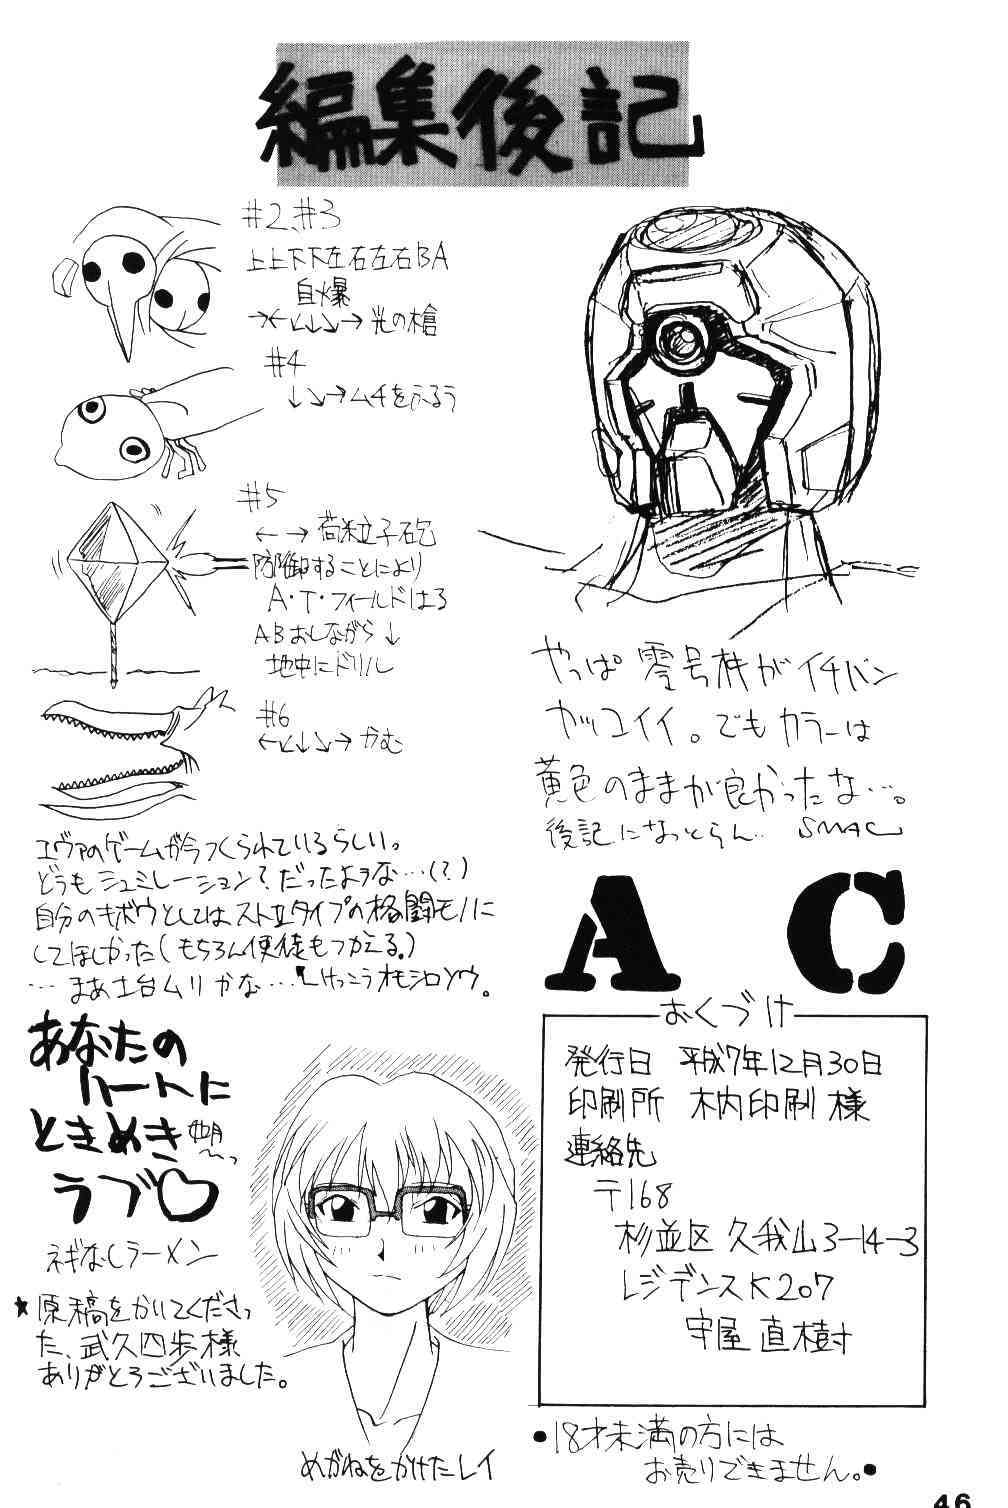 編集後記
#2、#3
上上下下左右左右BA
自爆
→←↙↓↘→光の槍
#4
↓↘→ムチをふるう
#5
←→荷粒子砲
防御することにより
A・T・フィールドはる
ABおしながら↓
地中にドリル
#6
←↙↓↘→かむ
エヴァのゲームが今つくられているらしい。
どうもシュミレーション?だったような…(?)
自分のキボウとしてはストIIタイプの格闘モノに
してほしかった(もちろん使徒もつかえる。)
…まあ土台ムリかな…けっこうオモシロソウ。
やっぱ零号機がイチバン
カッコイイ。でもカラーは
黄色のままが良かったな…。
後記になっとらん.. SMAC
AC
あなたの
ハートに
ときめき
ラブ♡
ネギなしラーメン
★原稿をかいてくださっ
た、武久四歩様
ありがとうございました。
めがねをかけたレイ
おくづけ
発行日 平成7年12月30日
印刷所 木内印刷様
連絡先
〒168
杉並区久我山3-14-3
レジデンスK207
守屋直樹
●18才未満の方には
お売りできません。●
46